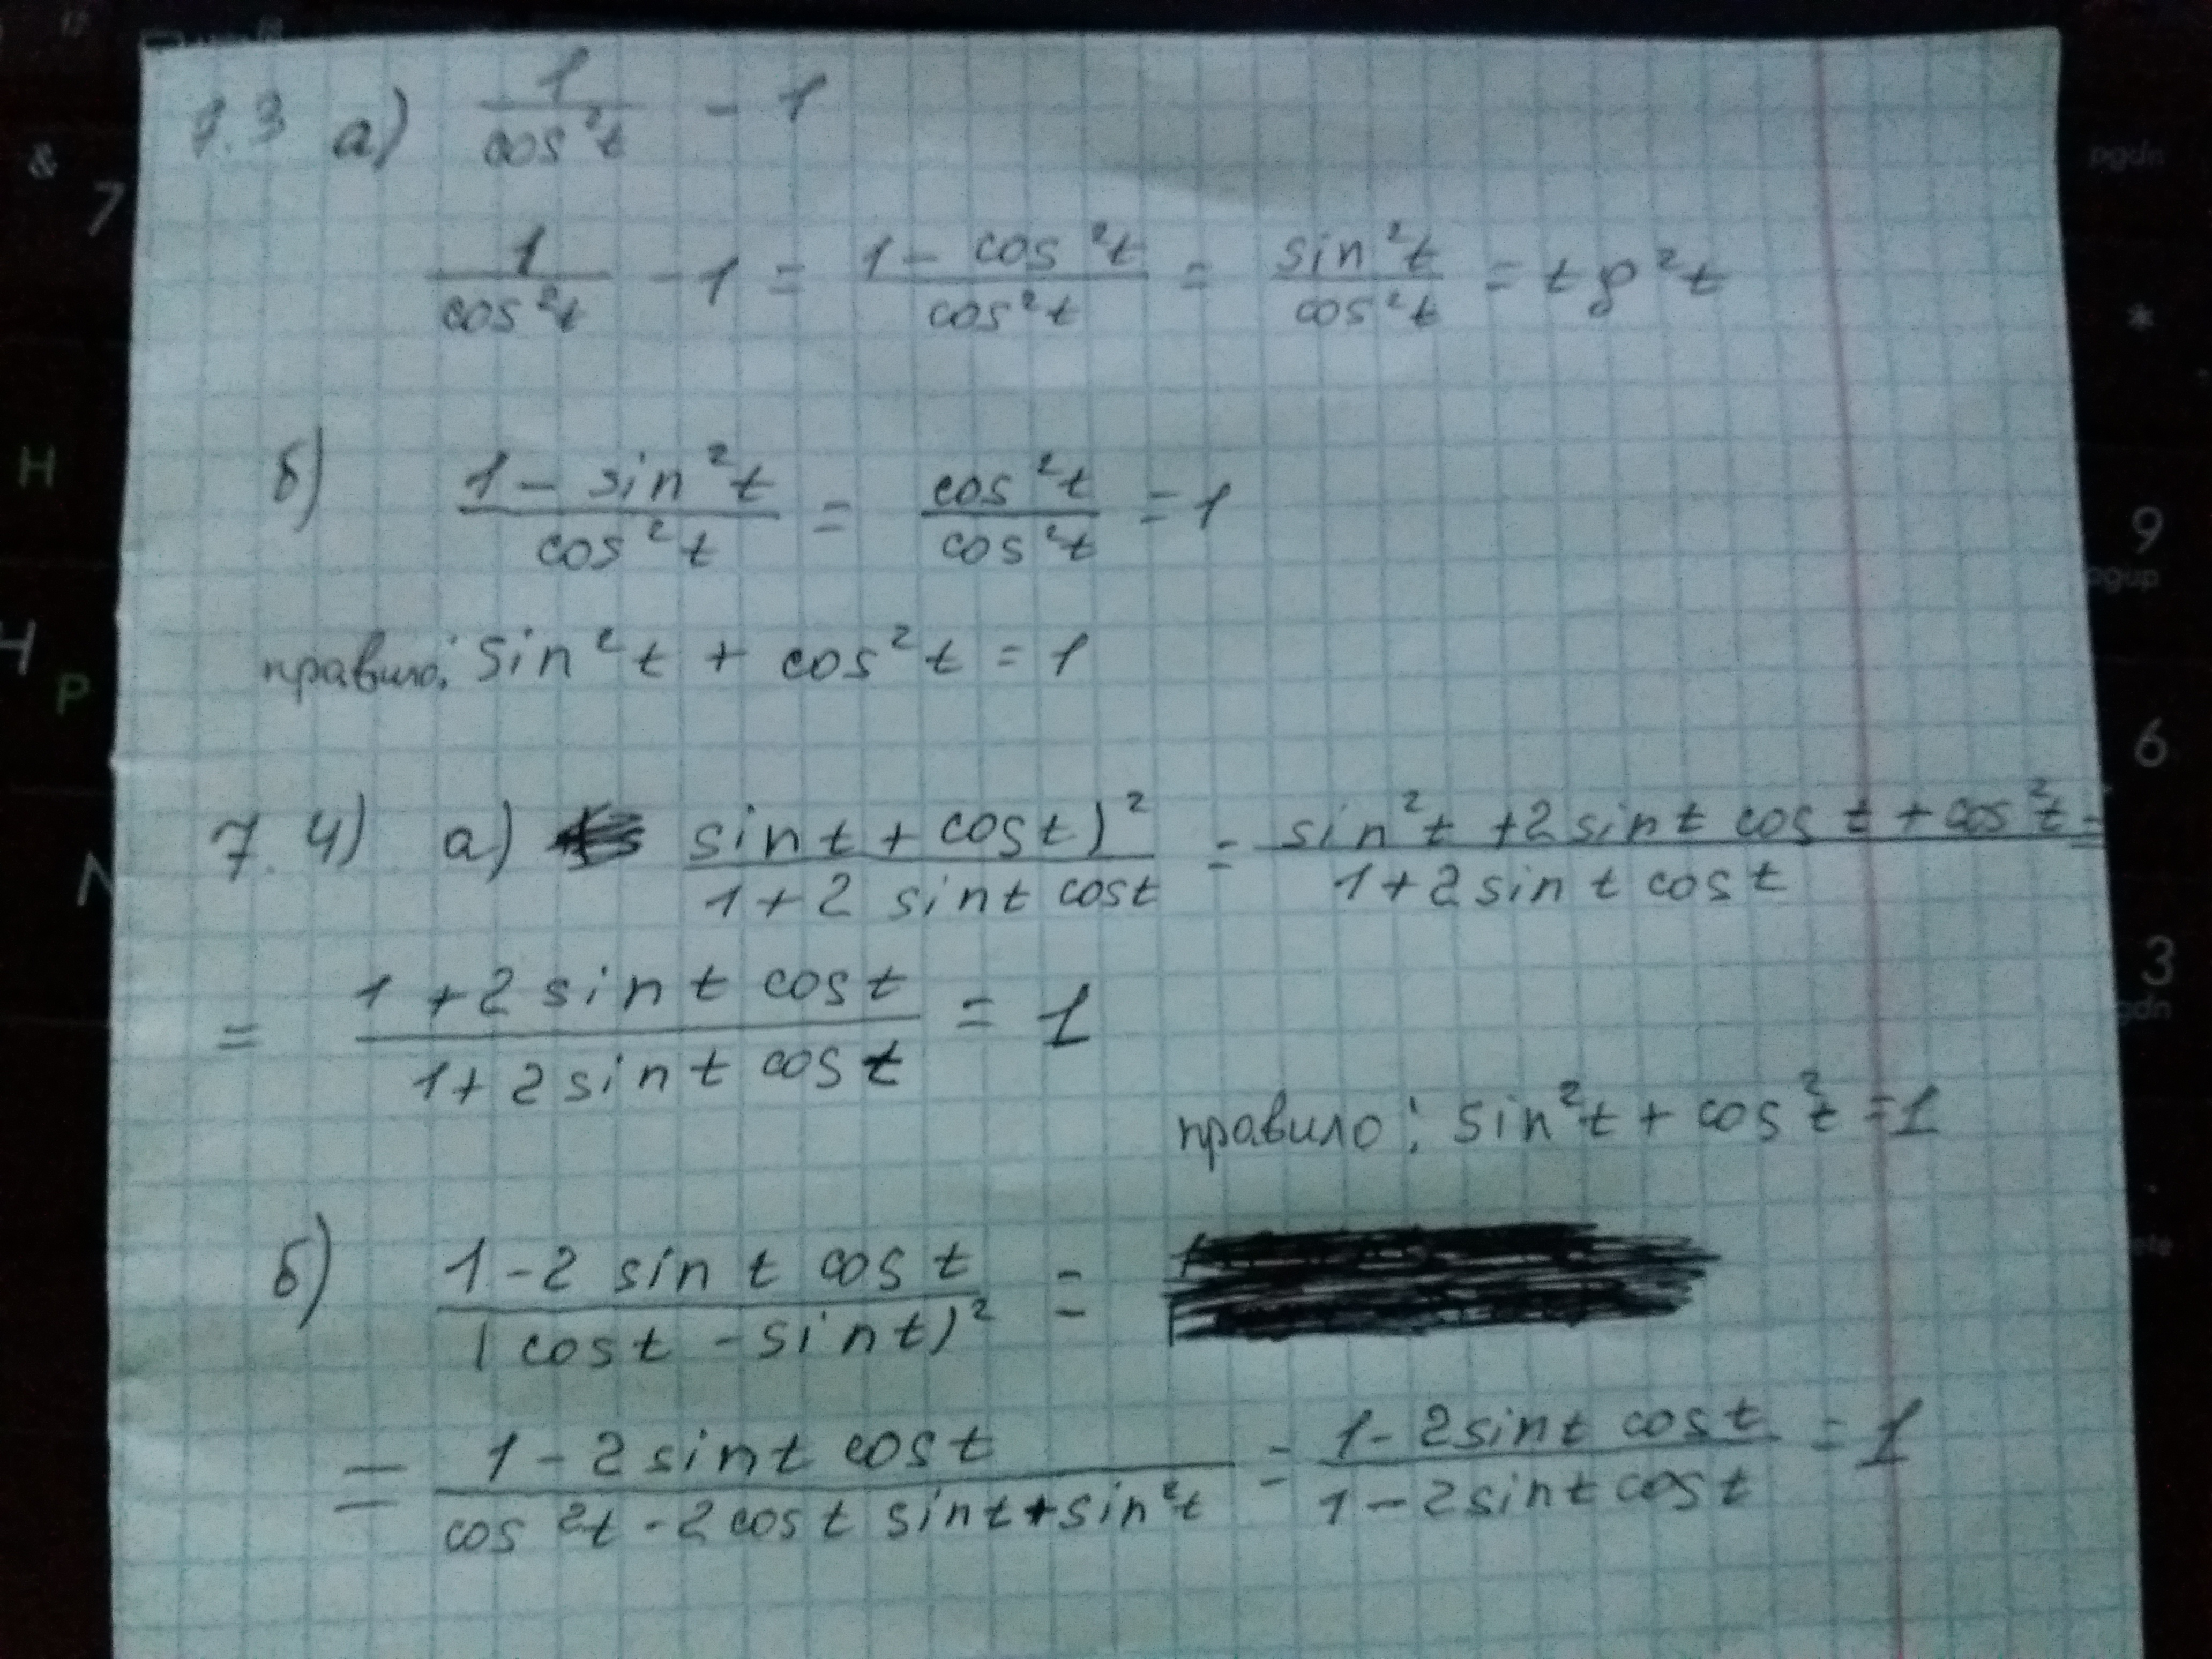 7.3 а) 1/cos²t - 1
1/cos²t - 1 = (1 - cos²t)/cos²t = sin²t/cos²t = tg²t
б) (1 - sin²t)/cos²t = cos²t/cos²t = 1
правило: sin²t + cos²t = 1
7.4) а) sint + cost)²/(1 + 2 sint cost) = (sin²t + 2 sint cost + cos²t)/(1 + 2 sint cost) =
= (1 + 2 sint cost)/(1 + 2 sint cost) = 1
правило: sin²t + cos²t = 1
б) (1 - 2 sint cost)/(cost - sint)² =
= (1 - 2 sint cost)/(cos²t - 2 cost sint + sin²t) = (1 - 2 sint cost)/(1 - 2 sint cost) = 1
&
7
pgdn
*
H
9
pgup
P
6
3